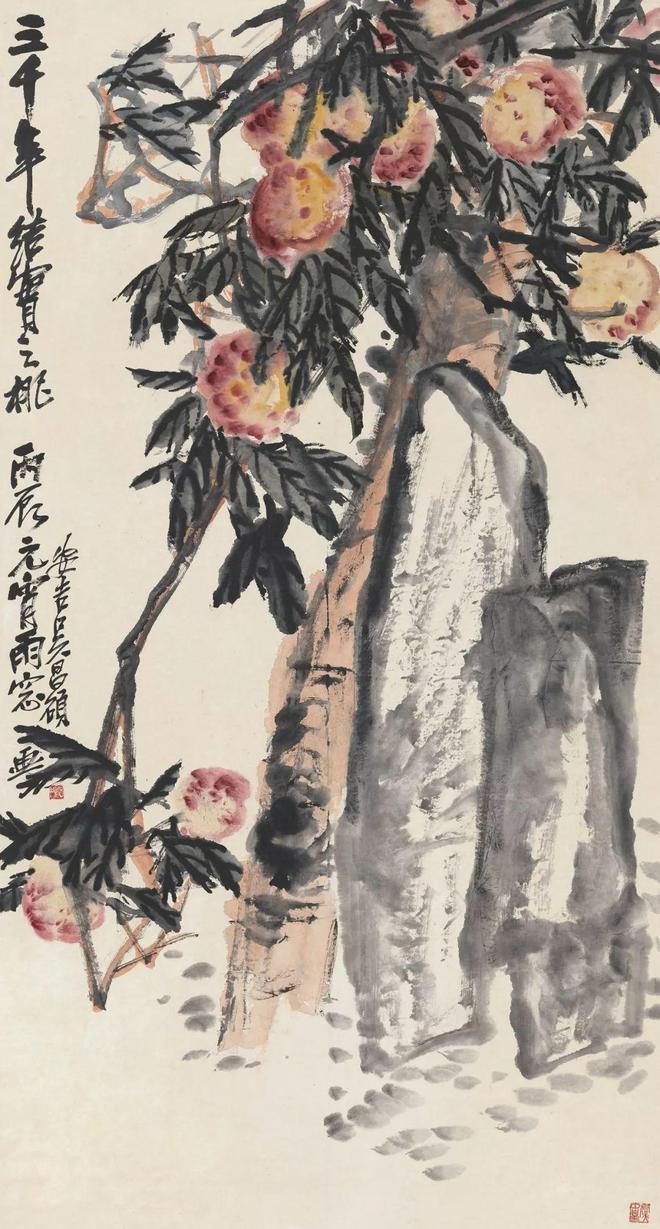 三千年結實之桃 丙辰元宵雨窗畫
安吉吳昌碩